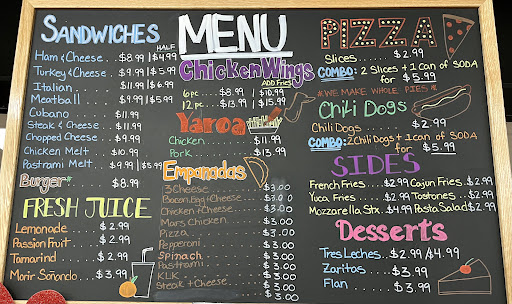 SANDWICHES
HALF
Ham & Cheese...$8.99 | $4.99
Turkey & Cheese..$9.99 | $5.99
Italian.......$11.99 | $6.99
Meatball......$9.99 | $5.99
Cubano........$11.99
Steak & Cheese....$11.99
Chopped Cheese....$9.99
Chicken Melt....$10.99
Pastrami Melt..$9.99 | $5.99
Burger $8.99
FRESH JUICE
Lemonade.....$2.99
Passion Fruit..$2.99
Tamarind.....$2.99
Morir Soñando...$3.99
MENU
Chicken Wings
ADD Fries
6 pc....$8.99 | $10.99
12 pc...$13.99 | $15.99
Yaroa
Chicken.......$11.99
Pork..........$13.99
Empanadas
3 Cheese.......$3.00
Bacon, Egg & Cheese..$3.00
Chicken & Cheese...$3.00
Mars Chicken....$3.00
Pizza..........$3.00
Pepperoni......$3.00
Spinach........$3.00
Pastrami.......$3.00
KLK............$3.00
Steak & Cheese...$3.00
PIZZA
Slices.......$2.99
COMBO: 2 Slices + 1 Can of SODA
for $5.99
*WE MAKE WHOLE PIES*
Chili Dogs
Chili Dogs....$2.99
COMBO: 2 Chili Dogs + 1 can of SODA
for $5.99
SIDES
French Fries...$2.99 Cajun Fries..$2.99
Yuca Fries....$2.99 Tostones..$2.99
Mozzarella Stx..$4.99 Pasta Salad $2.99
Desserts
Tres Leches..$2.99/$4.99
Zaritos......$3.99
Flan.........$3.99